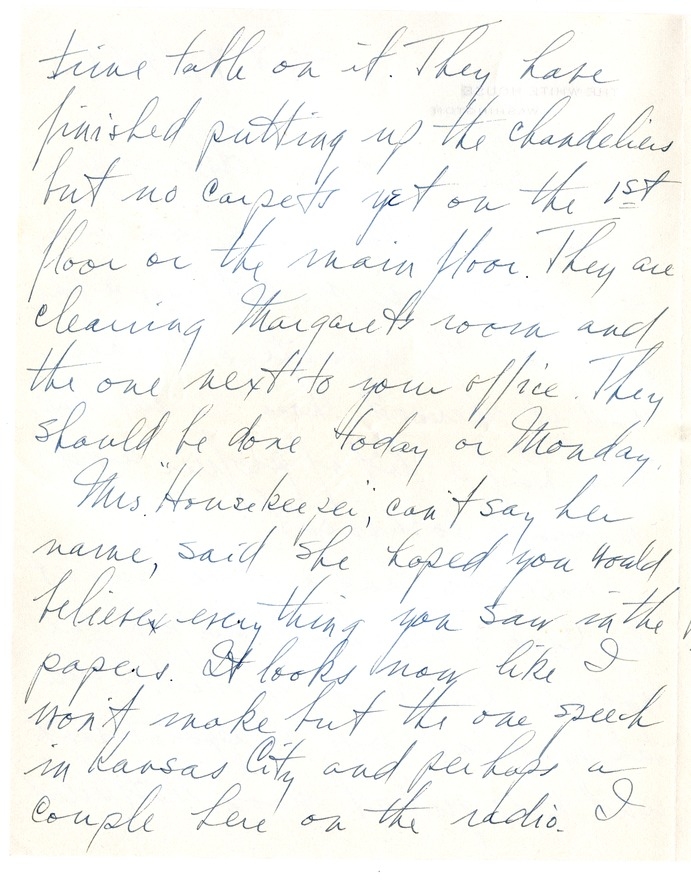 time table on it. They have
finished putting up the chandeliers
but no carpets yet on the 1st
floor or the main floor. They are
cleaning Margaret's room and
the one next to your office. They
should be done today or Monday.
Mrs. "Housekeeper", can't say her
name, said she hoped you would
believex everything you saw in the
papers. It looks now like I
won't make but the one speech
in Kansas City and perhaps a
couple here on the radio. I